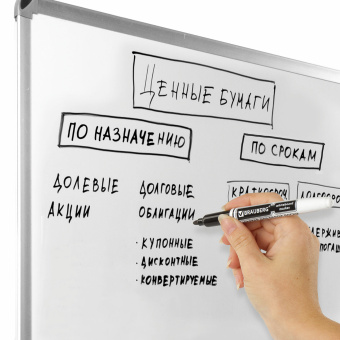 ЦЕННЫЕ БУМАГИ
ПО НАЗНАЧЕНИЮ
ПО СРОКАМ
ДОЛЕВЫЕ
АКЦИИ
ДОЛГОВЫЕ
ОБЛИГАЦИИ
· КУПОННЫЕ
· ДИСКОНТНЫЕ
· КОНВЕРТИРУЕМЫЕ
BRAUBERG